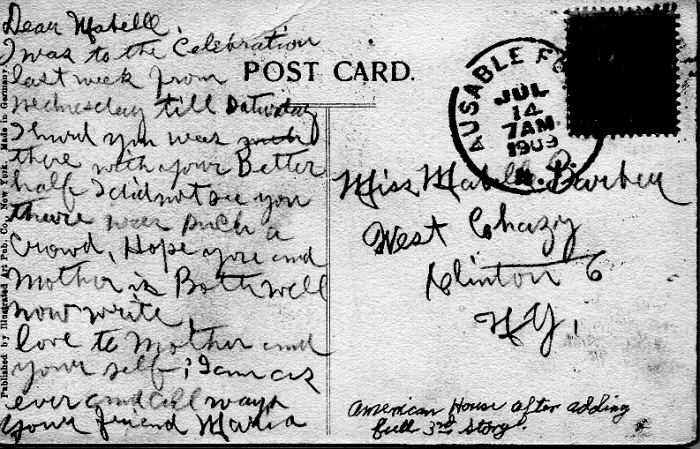 Dear Mabelle,
I was to the Celebration
last week from
Wednesday till Saturday
I hurd you was
there with your Better
half I did not see you
theire was such a
Crowd, Hope you and
Mother is Both well
now write,
love to Mother and
your self; I am as
ever and all ways
your friend Maria
POST CARD.
AUSABLE FO
JUL
14
7AM
1909
N.Y.
Miss Mabelle Barber
West Chazy
Clinton C
N.Y.
American House after adding
full 3rd story.
Published by Illustrated Art Pub. Co., New York. Made in Germany.